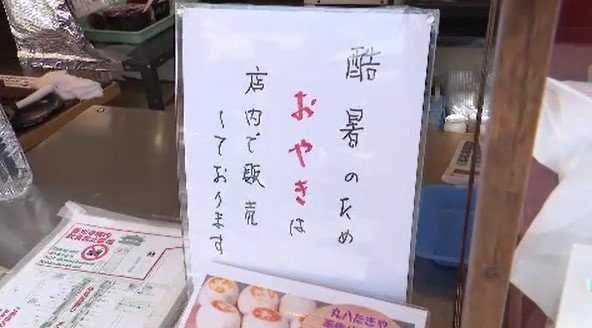 酷暑のため
おやきは
店内で販売
しております
丸八たきや